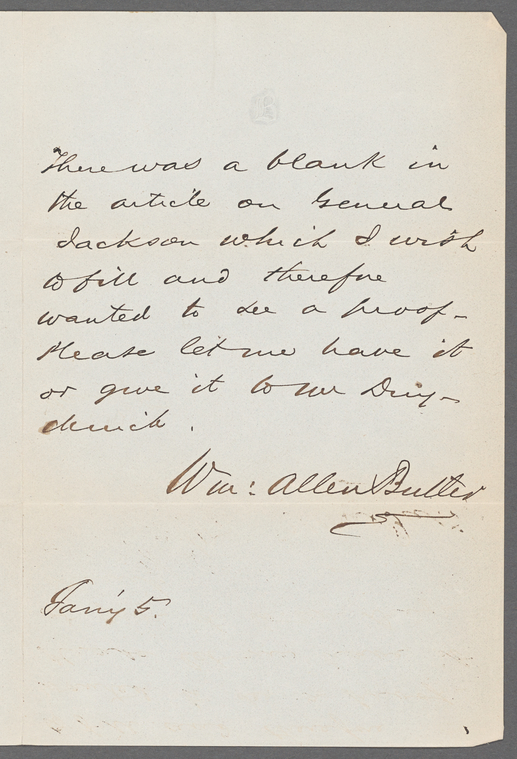 There was a blank in
the article on General
Jackson which I wish
to fill and therefore
wanted to see a proof-
Please let me have it
or give it to Mr Duy-
ckinck.
Wm: Allen Butler
Jan'y 5.